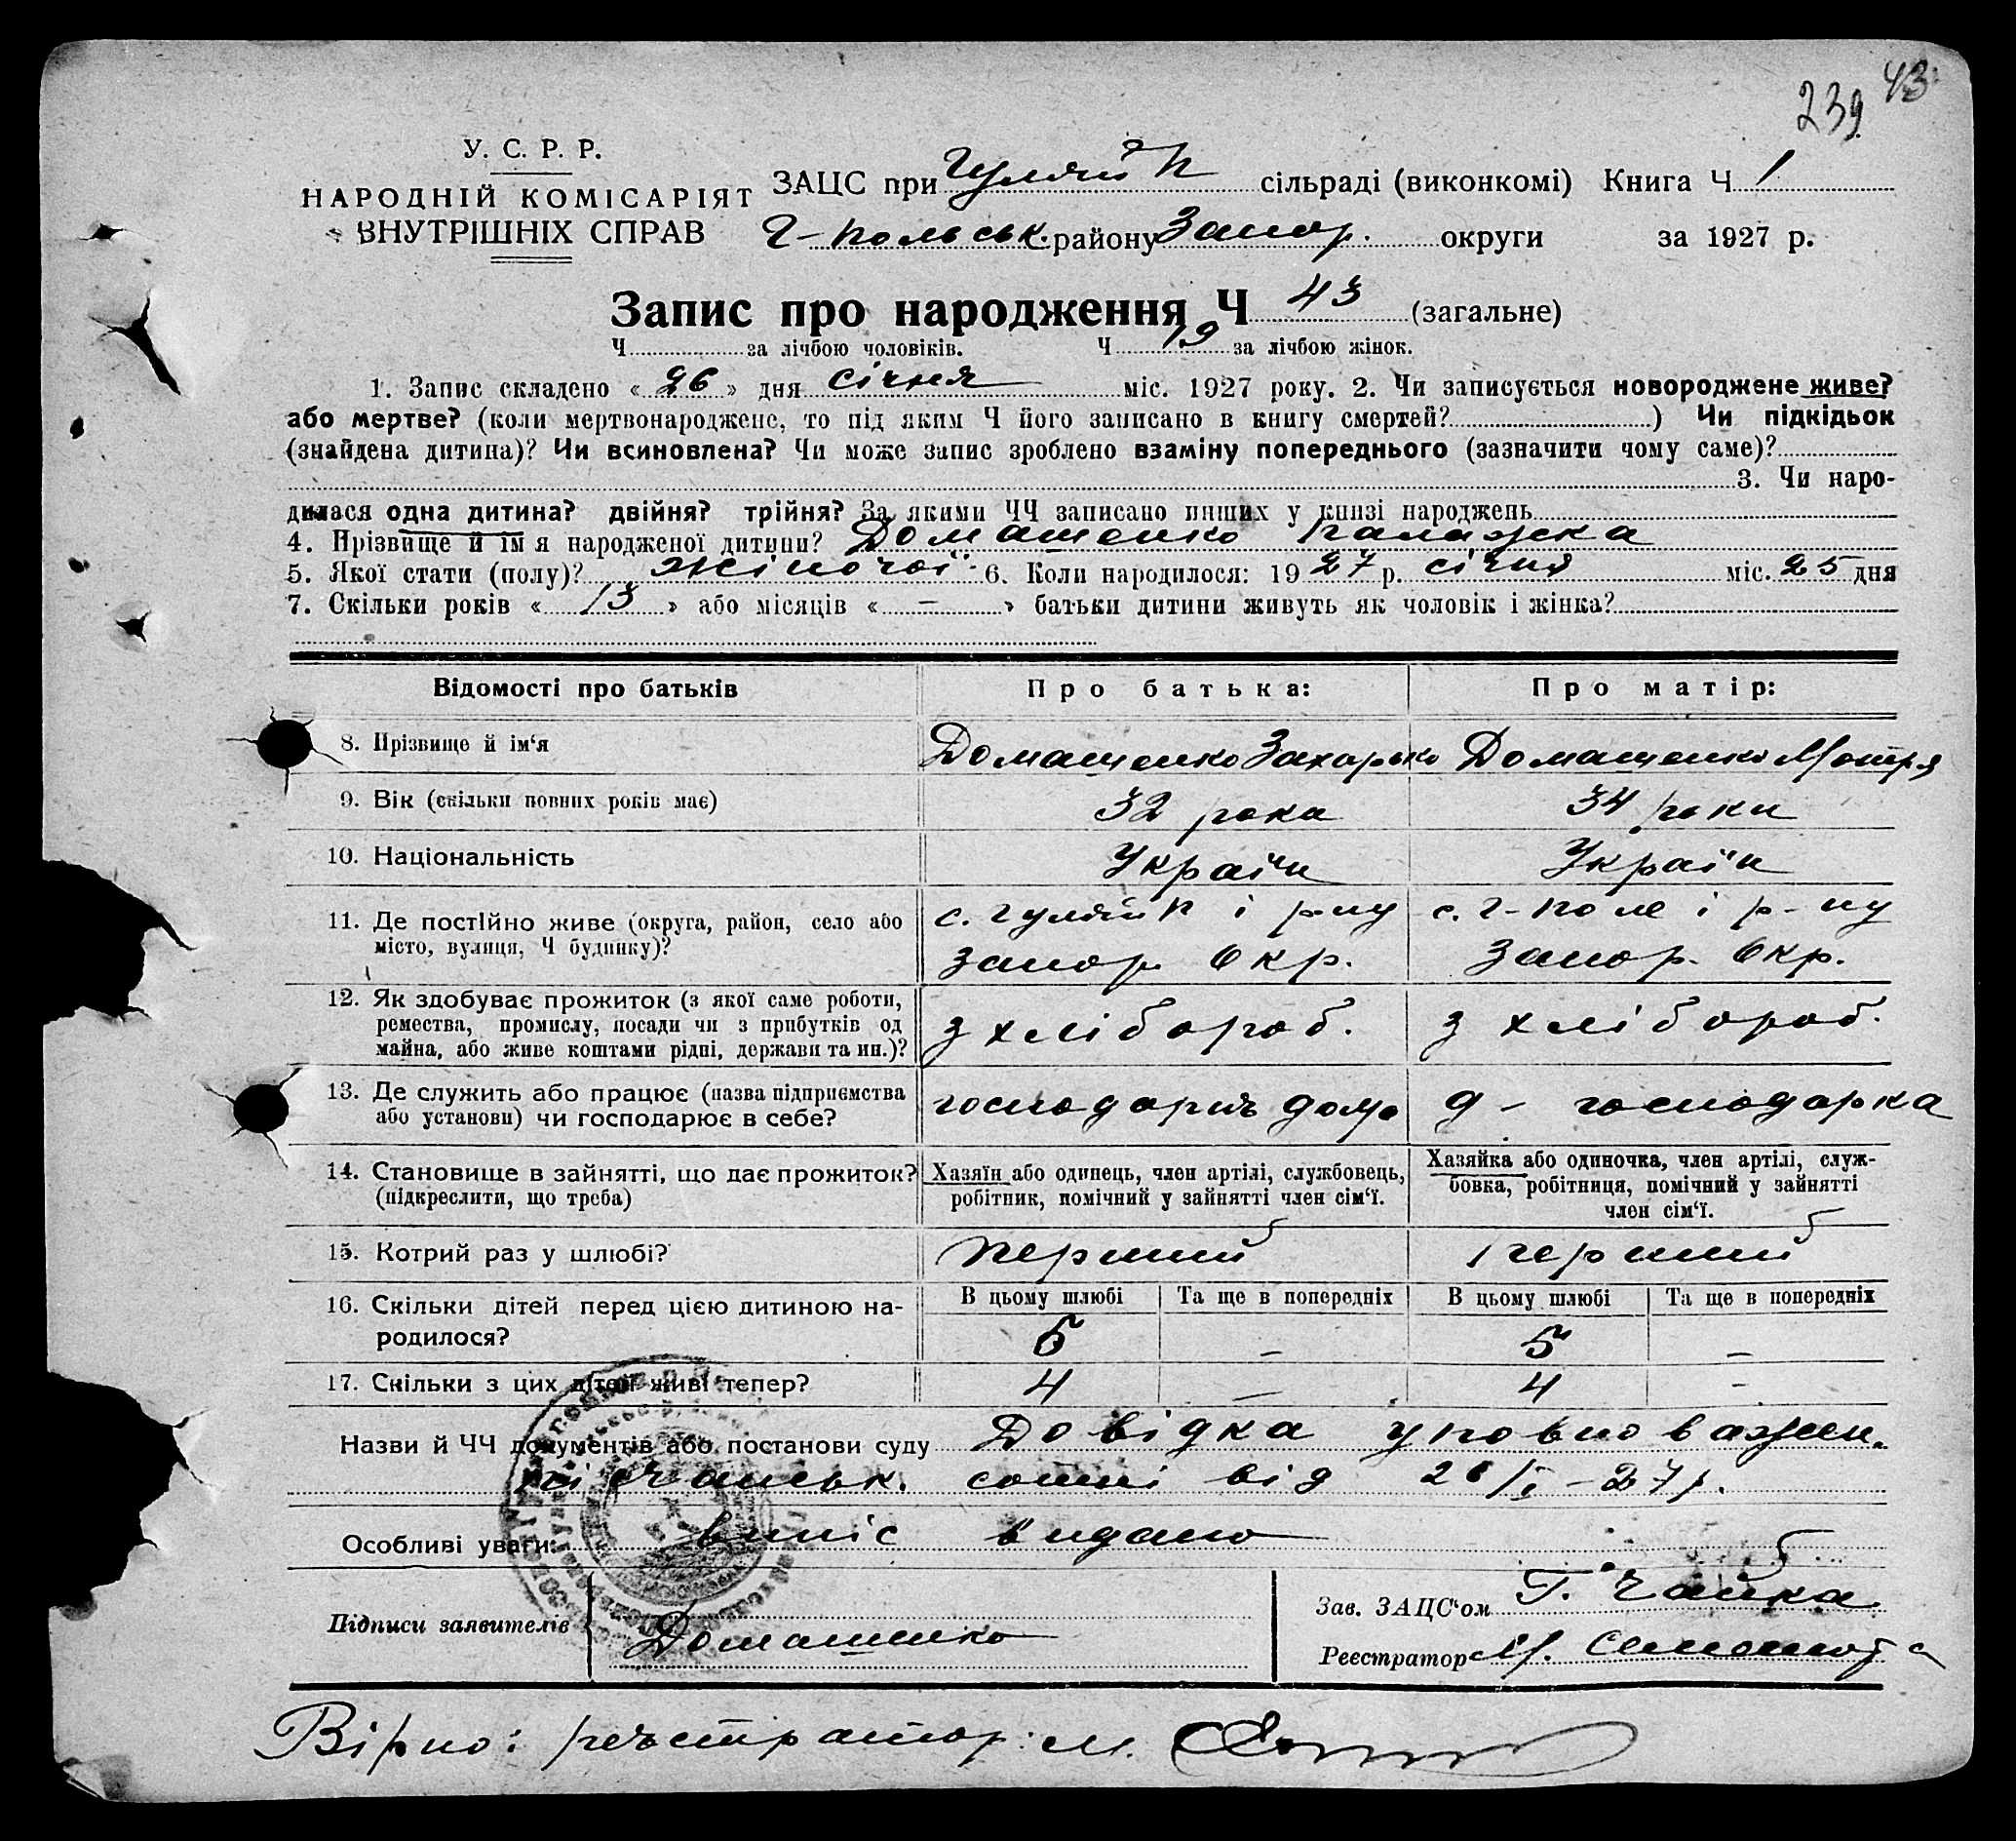 239 43
У. С. Р. Р.
НАРОДНІЙ КОМІСАРІЯТ
ВНУТРІШНІХ СПРАВ
ЗАЦС при Гуляй П сільраді (виконкомі) Книга Ч 1
Г-Польськ. району Запор. округи за 1927 р.
Запис про народження Ч 43 (загальне)
Ч за лічбою чоловіків. Ч 19 за лічбою жінок.
1. Запис складено « 26 » дня січня міс. 1927 року. 2. Чи записується новороджене живе?
або мертве? (коли мертвонароджене, то під яким Ч його записано в книгу смертей? ) Чи підкідьок
(знайдена дитина)? Чи всиновлена? Чи може запис зроблено взаміну попереднього (зазначити чому саме)?
3. Чи наро-
дилася одна дитина? двійня? трійня? За якими ЧЧ записано инших у книзі народжень
4. Прізвище й ім я народженої дитини? Домашенко Палажка
5. Якої стати (полу)? жіночої 6. Коли народилося: 19 27 р. січня міс. 25 дня
7. Скільки років « 13 » або місяців « – » батьки дитини живуть як чоловік і жінка?
Відомості про батьків Про батька: Про матір:
8. Прізвище й ім‘я Домашенко Захарько Домашенко Мотря
9. Вік (скільки повних років має) 32 рока 34 роки
10. Національність Україн Україн
11. Де постійно живе (округа, район, село або с. Гуляй П і р-ну с. Г-Поле і р-ну
місто, вулиця, Ч будинку)? Запор. Окр. Запор. Окр.
12. Як здобуває прожиток (з якої саме роботи,
ремества, промислу, посади чи з прибутків од з хлібороб. з хлібороб.
майна, або живе коштами рідні, держави та ин.)?
13. Де служить або працює (назва підприємства господарить дома д - господарка
або установи) чи господарює в себе?
14. Становище в зайнятті, що дає прожиток? Хазяїн або одинець, член артілі, службовець, Хазяйка або одиночка, член артілі, служ-
(підкреслити, що треба) робітник, помічний у зайнятті член сім‘ї. бовка, робітниця, помічний у зайнятті
член сім‘ї.
15. Котрий раз у шлюбі? перший перший
16. Скільки дітей перед цією дитиною на- В цьому шлюбі Та ще в попередніх В цьому шлюбі Та ще в попередніх
родилося? 5 – 5 –
17. Скільки з цих дітей живі тепер? 4 – 4 –
Назви й ЧЧ документів або постанови суду Довідка уповноважен.
сотні від 26/I – 27 р.
Особливі уваги: випіс видано
Підписи заявителів Домашенко
Зав. ЗАЦС‘ом Г. Чайка
Реєстратор М.
Вірно: реъстратор: М.